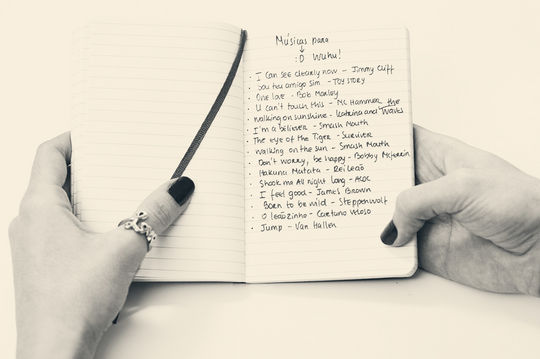 Músicas para
↓
:D Wuhu!
· I can see clearly now - Jimmy Cliff
· Sou teu amigo sim - TOY STORY
· One love - Bob Marley
· U can't touch this - Mc Hammer
· Walking on sunshine - Katrina and the Waves
· I'm a believer - Smash Mouth
· The eye of the Tiger - Survivor
· Walking on the sun - Smash Mouth
· Don't worry, be happy - Bobby Mcferrin
· Hakuna Matata - Rei Leão
· Shook me All night long - ACDC
· I feel good - James Brown
· Born to be wild - Steppenwolf
· O leãozinho - Caetano Veloso
· Jump - Van Hallen